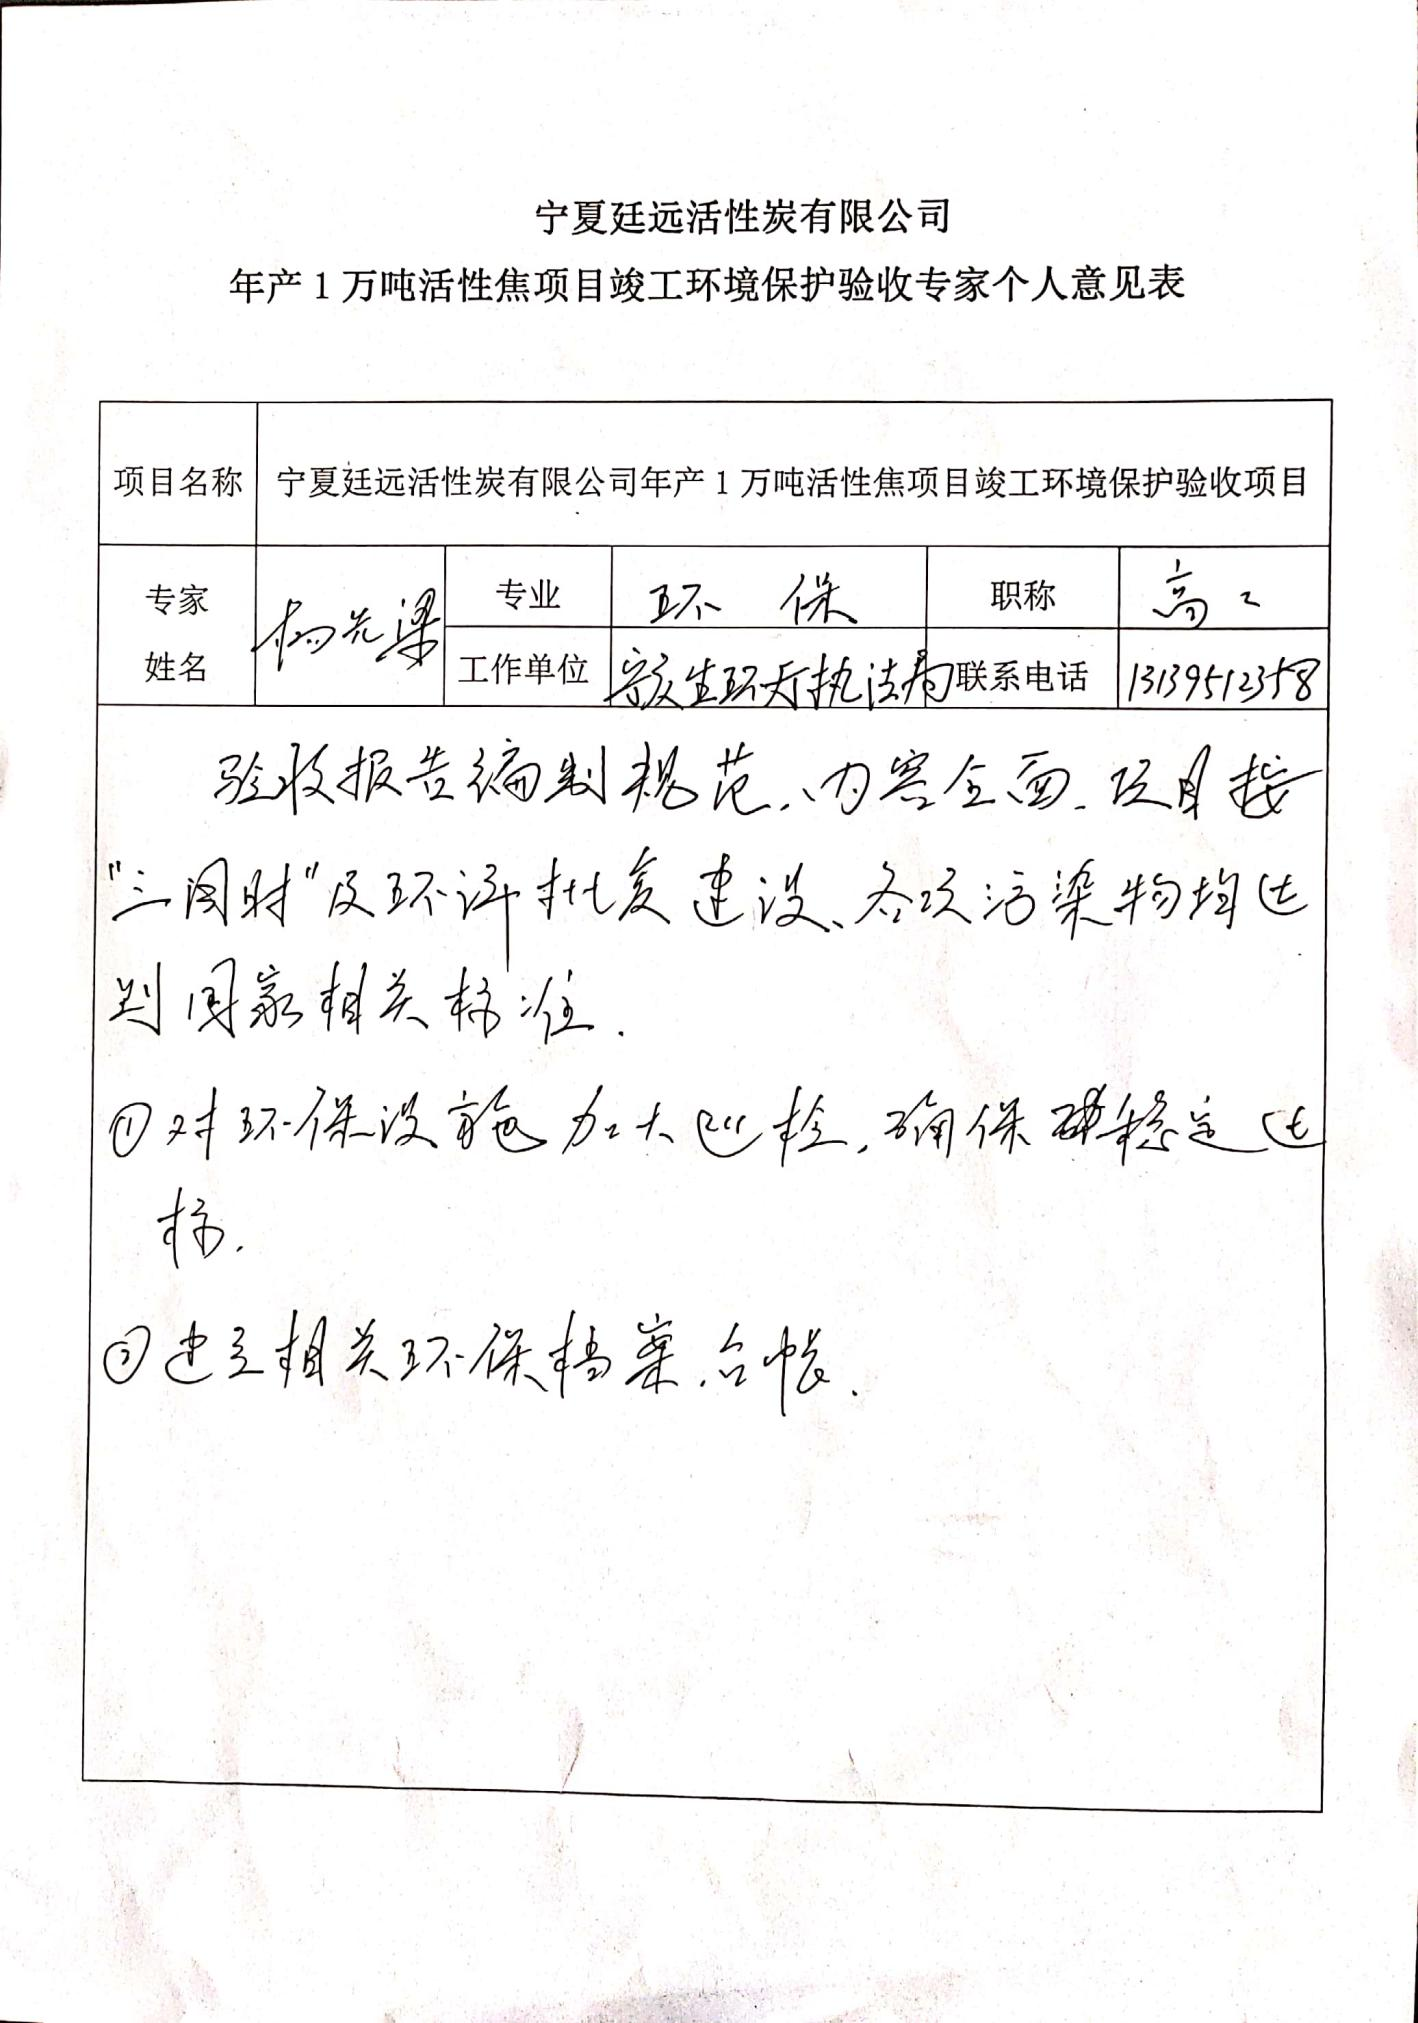 宁夏廷远活性炭有限公司
年产1万吨活性焦项目竣工环境保护验收专家个人意见表
项目名称 宁夏廷远活性炭有限公司年产1万吨活性焦项目竣工环境保护验收项目
专家姓名 杨 梁 专业 环保 职称 高工
工作单位 生环厅执法局 联系电话 13139512358
验收报告编制规范、内容全面、项目按
“三同时”及环评批复建设、各项污染物均达
到国家相关标准.
①对环保设施加大巡检,确保稳定达
标.
②建立相关环保档案、台帐.